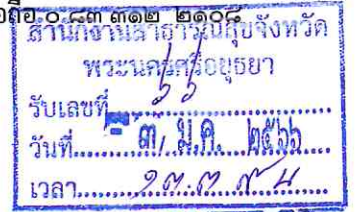 ๐ ๘๓ ๓๑๒ ๒๑๐๘
สำนักงานสาธารณสุขจังหวัด
พระนครศรีอยุธยา
รับเลขที่ ๖๖
วันที่ - ๓ ม.ค. ๒๕๖๖
เวลา